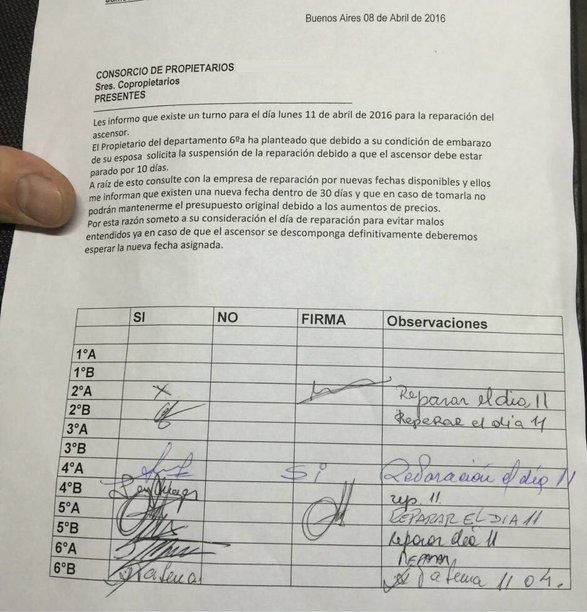 Buenos Aires 08 de Abril de 2016
CONSORCIO DE PROPIETARIOS
Sres. Copropietarios
PRESENTES
Les informo que existe un turno para el día lunes 11 de abril de 2016 para la reparación del
ascensor.
El Propietario del departamento 6ºa ha planteado que debido a su condición de embarazo
de su esposa solicita la suspensión de la reparación debido a que el ascensor debe estar
parado por 10 días.
A raíz de esto consulte con la empresa de reparación por nuevas fechas disponibles y ellos
me informan que existen una nueva fecha dentro de 30 días y que en caso de tomarla no
podrán mantenerme el presupuesto original debido a los aumentos de precios.
Por esta razón someto a su consideración el día de reparación para evitar malos
entendidos ya en caso de que el ascensor se descomponga definitivamente deberemos
esperar la nueva fecha asignada.
SI NO FIRMA Observaciones
1°A
1°B
2°A X Reparar el dia 11
2°B Reparar el dia 11
3°A
3°B
4°A Si Reparación el día 11
4°B rep. 11
5°A REPARAR EL DIA 11
5°B Reparar día 11
6°A REPARAR
6°B 11 04.